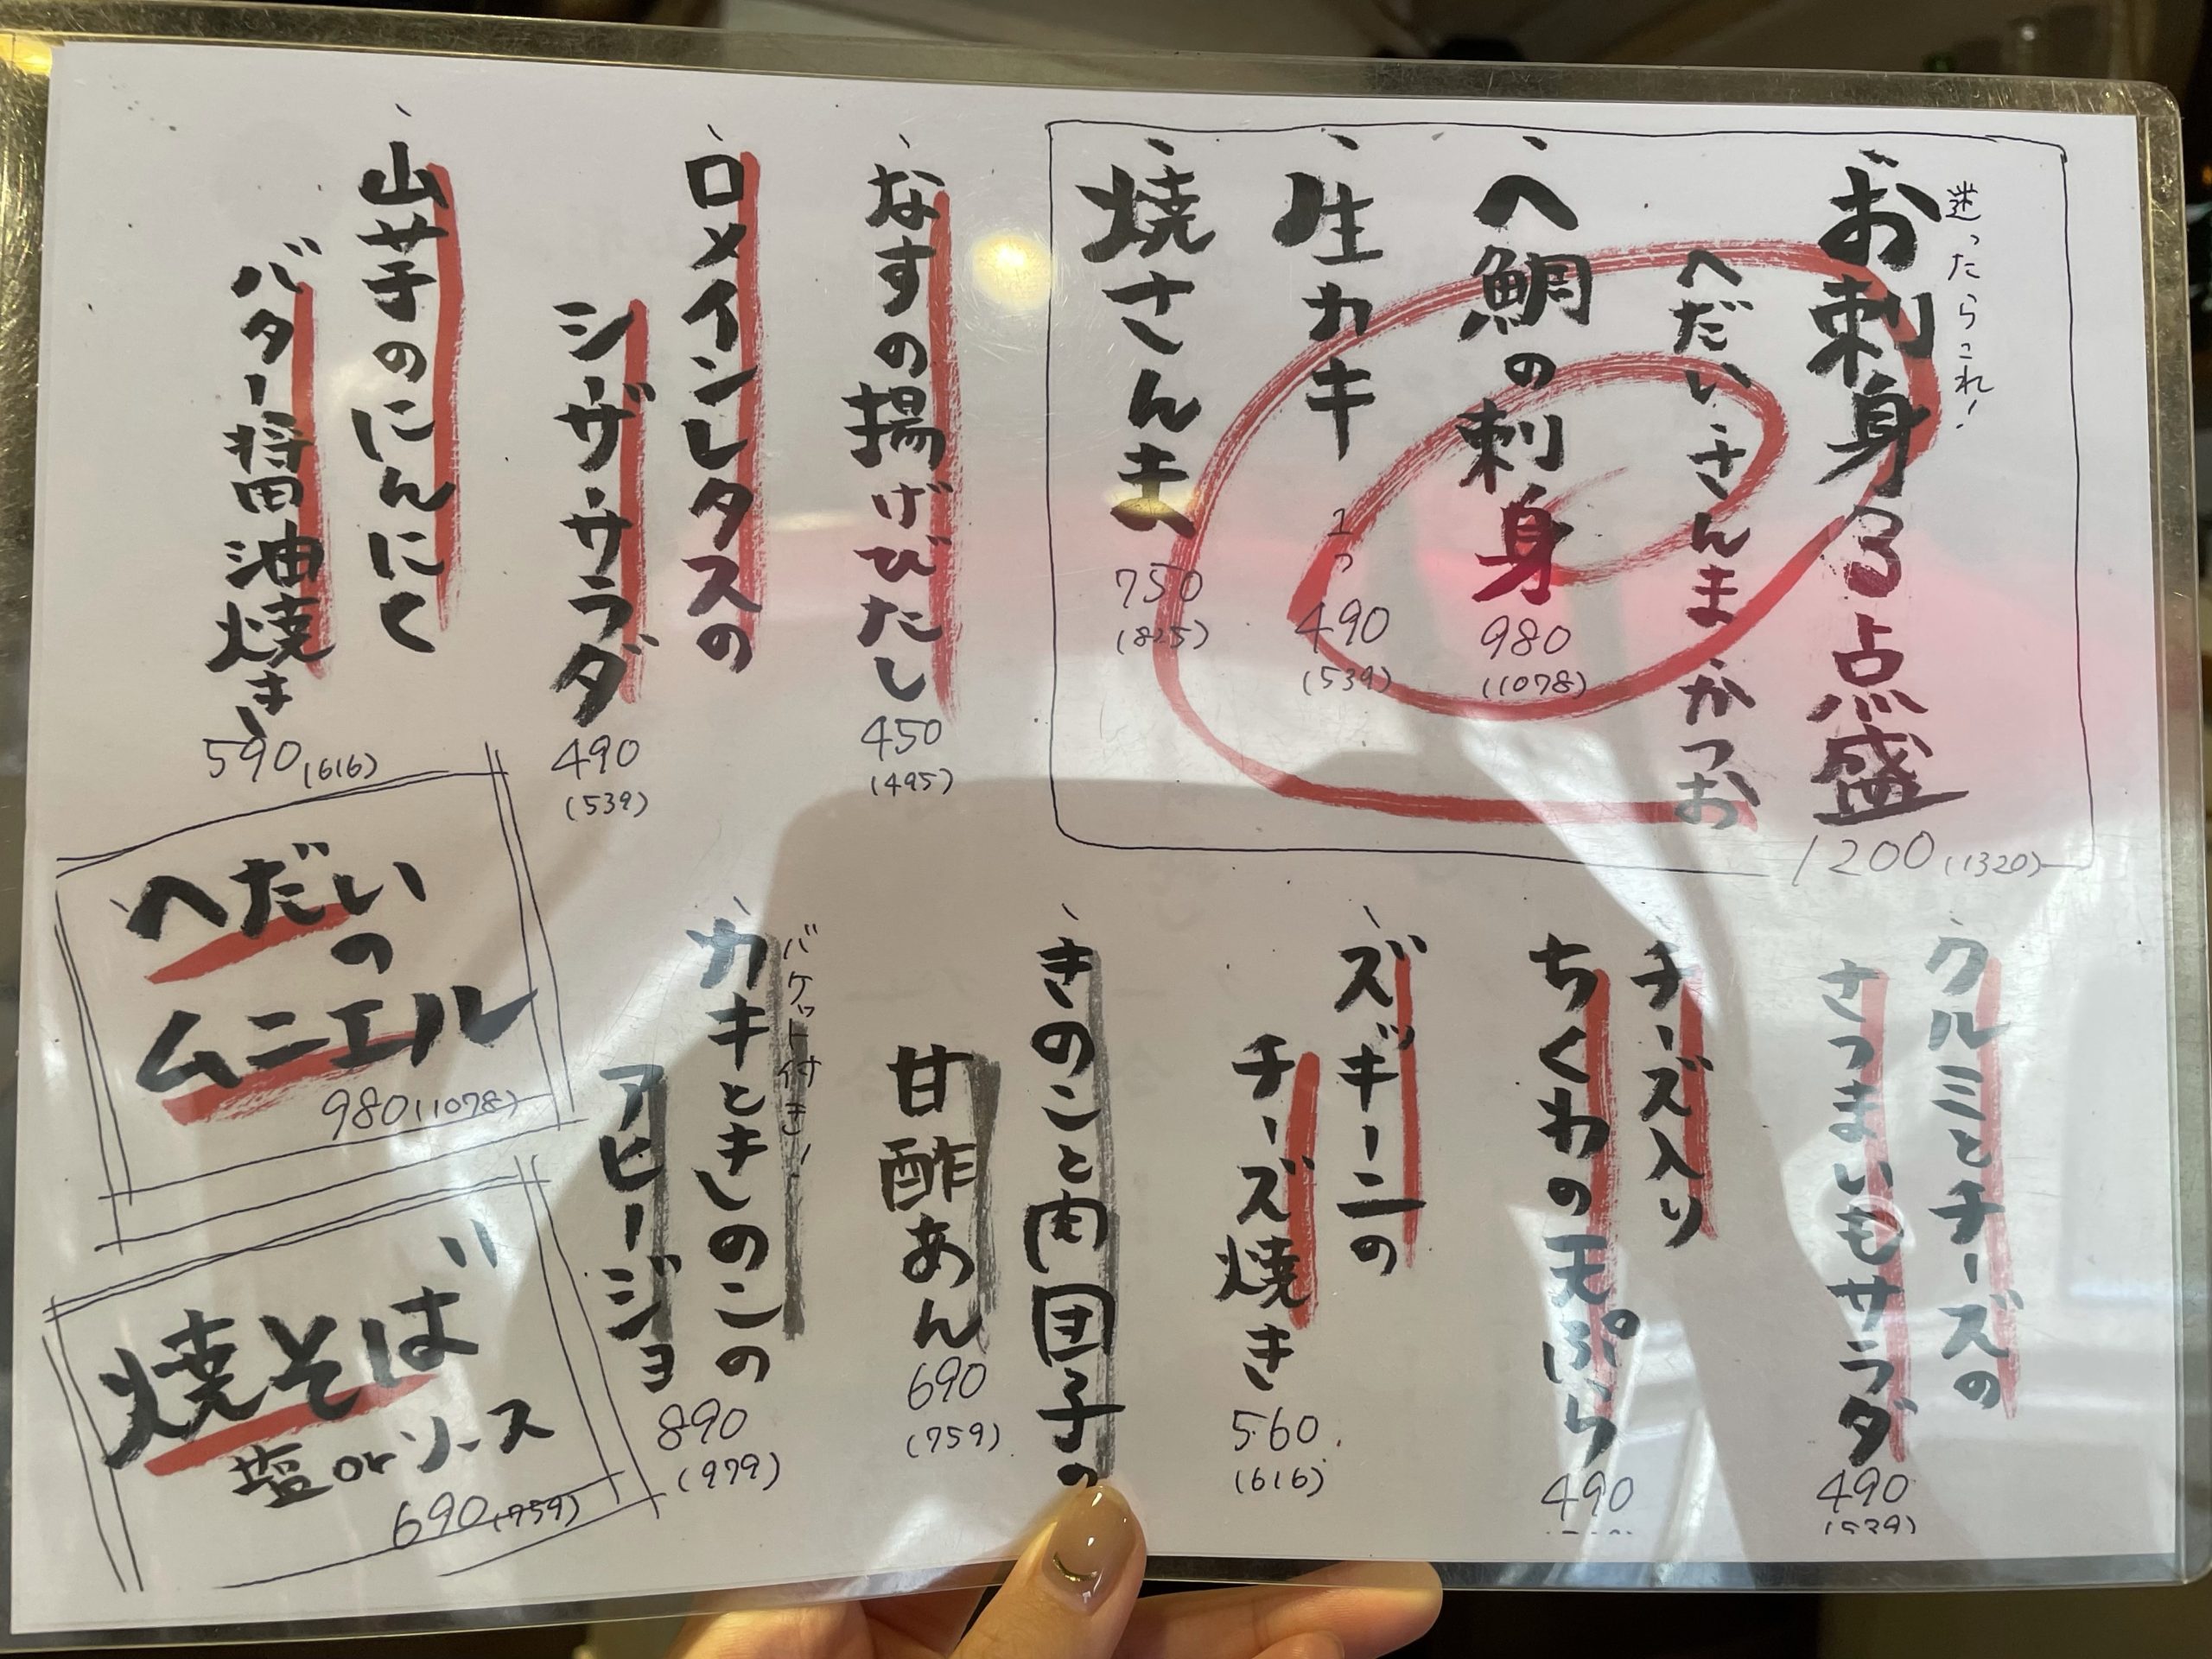 迷ったらこれ!
お刺身3点盛
へだい さんま かつお
1200(1320)
ヘ鯛の刺身
980
(1078)
生カキ
1つ
490
(539)
焼さんま
750
(825)
なすの揚げびたし
450
(495)
ロメインレタスの
シーザーサラダ
490
(539)
山芋のにんにく
バター醤油焼き
590(616)
クルミとチーズの
さつまいもサラダ
490
(539)
チーズ入り
ちくわの天ぷら
490
ズッキーニの
チーズ焼き
560
(616)
きのこと肉団子の
甘酢あん
690
(759)
バケット付き!
カキときのこの
アヒージョ
890
(979)
へだい
の
ムニエル
980(1078)
焼そば
塩orソース
690(759)